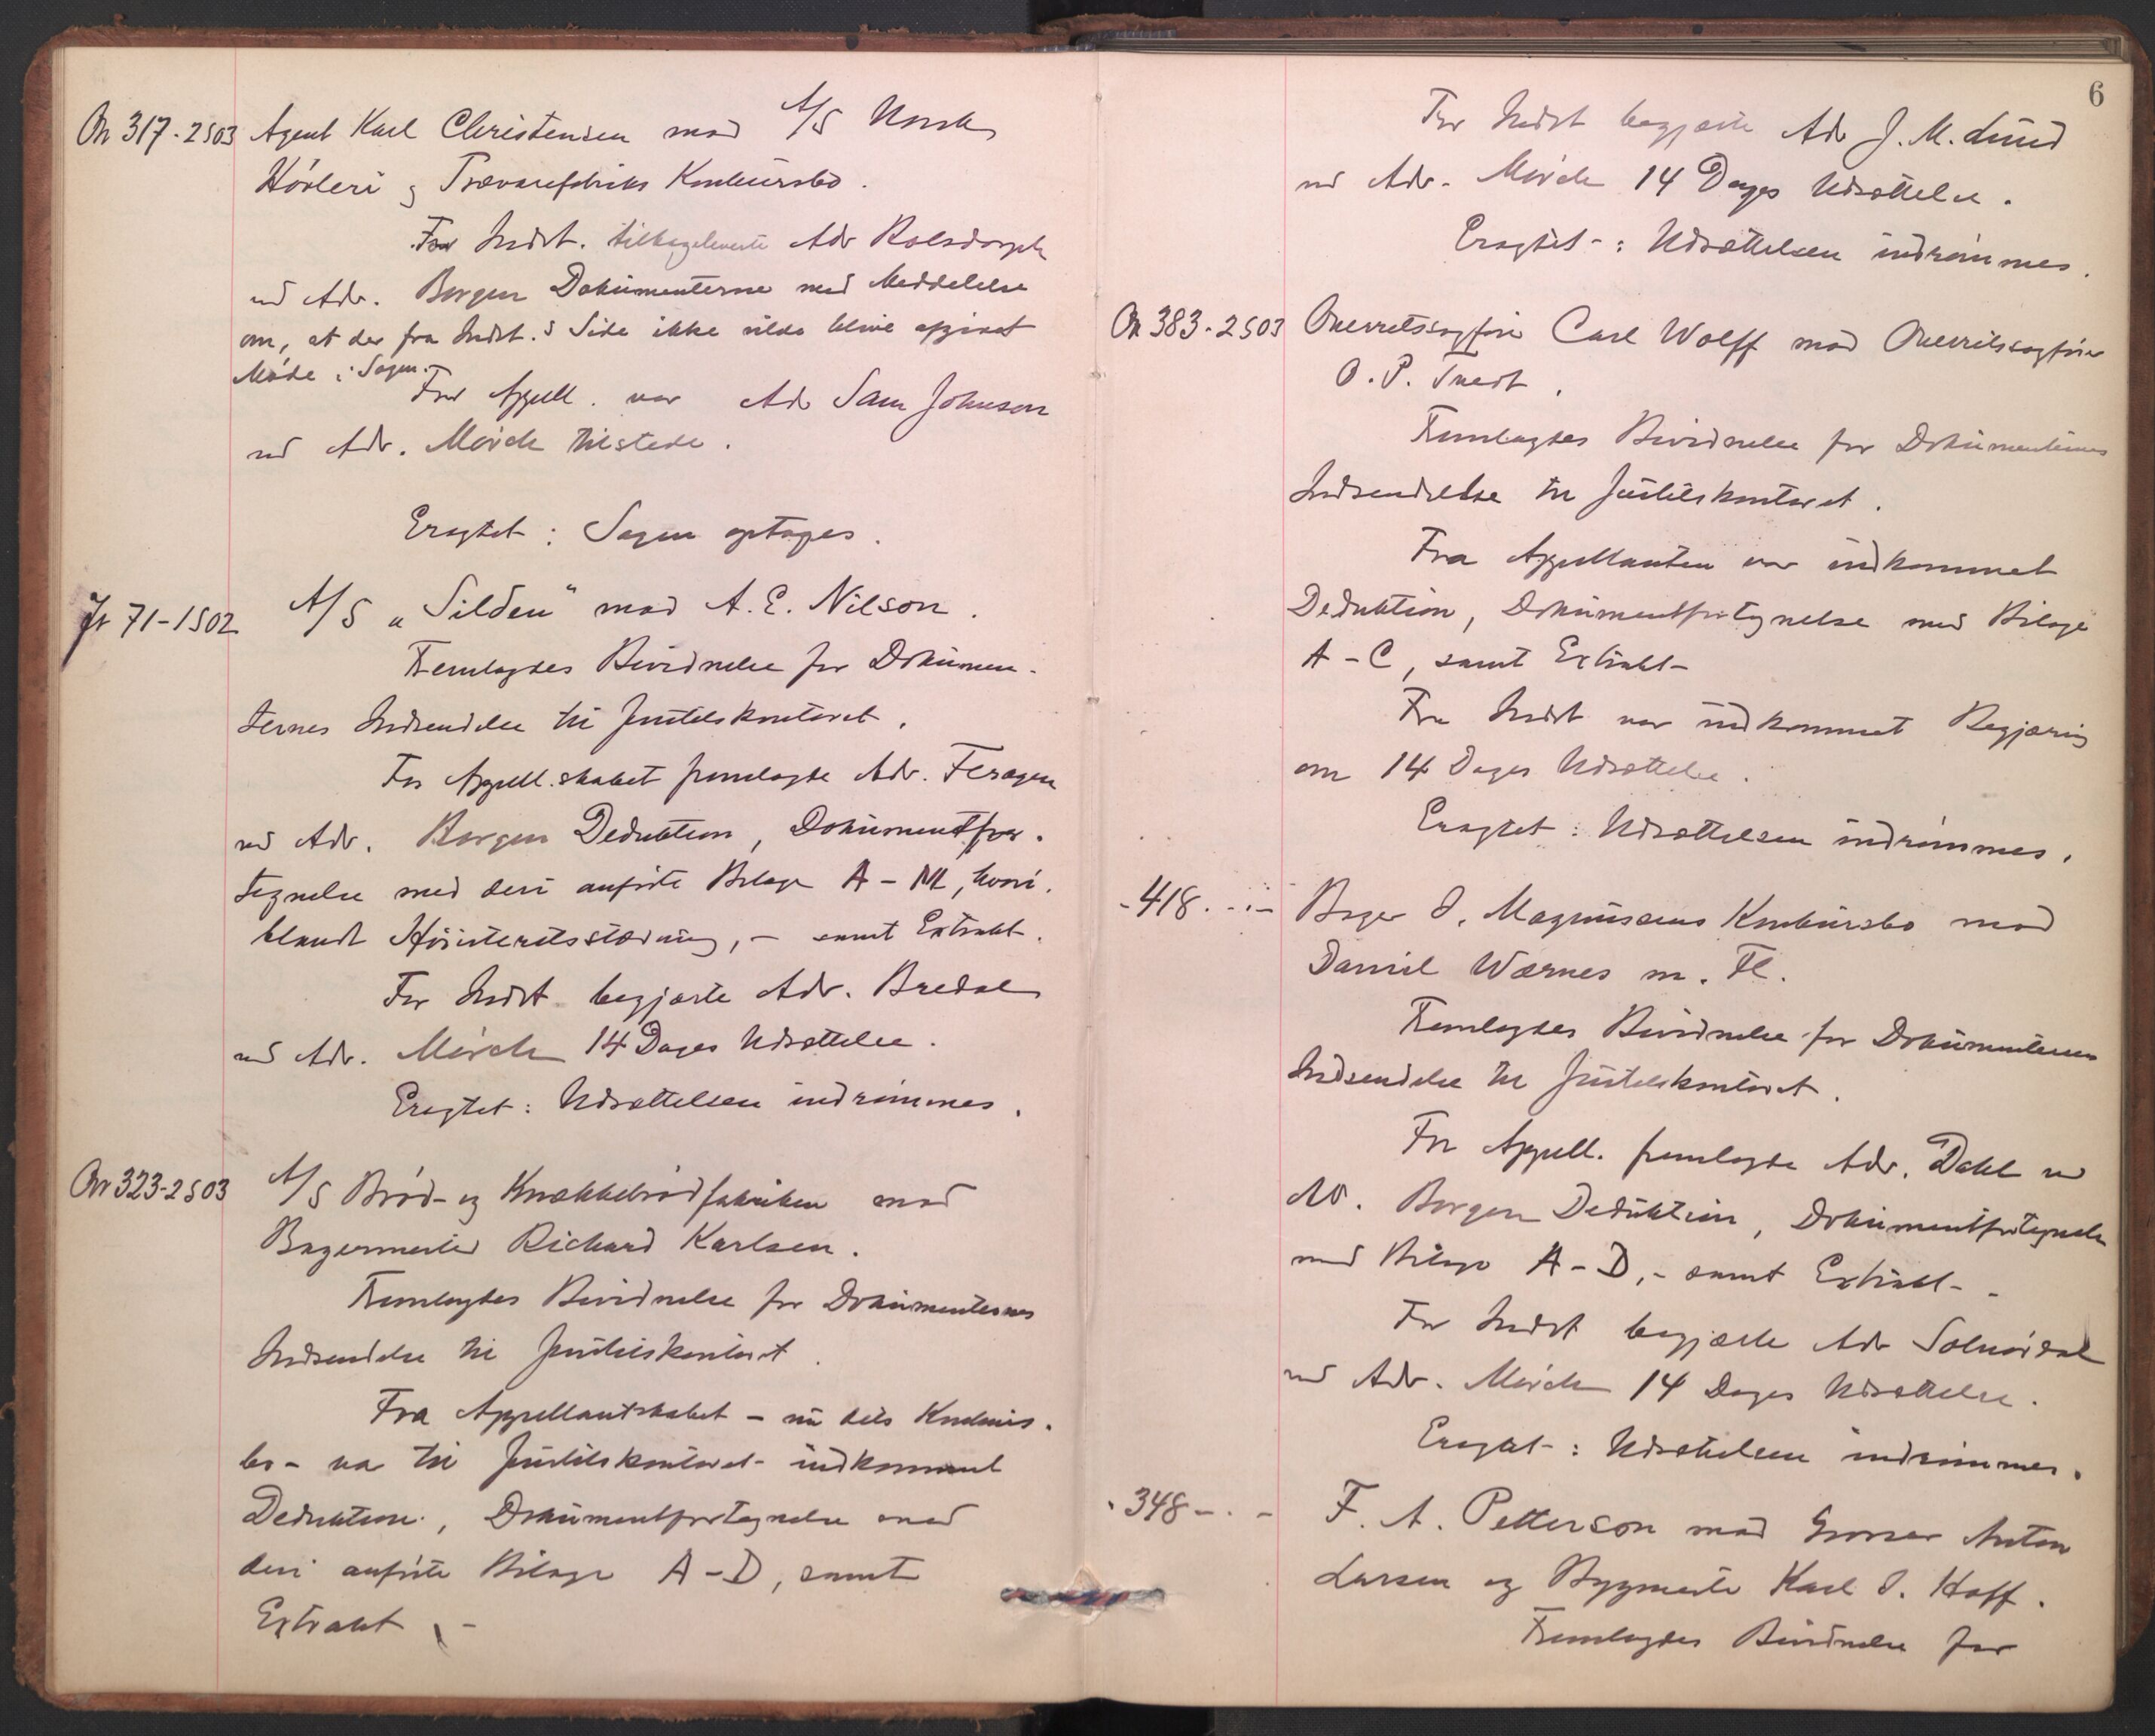 On 317-2503 Agent Karl Christensen mod A/S Norsk
Høvleri og Trævarefabriks Konkursbo.
For Indst. tilbageleverte Adv Rolsdorph
ved Adv. Borgen Dokumenterne med Meddelelse
om, at der fra Indst.s Side ikke vilde blive afgivet
Møde i Sagen.
For Appell. var Adv Sam Johnson
ved Adv. Mørch tilstede.
Eragtet: Sagen optages.
Jr 71-1502 A/S "Silden" mod A. E. Nilson.
Fremlagdes Bevidnelse for Dokumen-
ternes Indsendelse til Justitskontoret.
For Appell.skabet fremlagde Adv. Feragen
ved Adv. Borgen Deduktion, Dokumentfor-
tegnelse med deri anførte Bilage A-M, hvori-
blandt Høiesteretsstævning, - samt Extrakt.
For Indst begjærte Adv. Bredal
ved Adv. Mørch 14 Dages Udsættelse.
Eragtet: Udsættelsen indrømmes.
On 323-2503 A/S Brød- og Knækkebrødfabriken mod
Bagermester Richard Karlsen.
Fremlagdes Bevidnelse for Dokumenternes
Indsendelse til Justitskontoret.
Fra Appellantskabet - nu dets Konkurs-
bo - var til Justitskontoret indkommet
Deduktion, Dokumentfortegnelse med
deri anførte Bilage A-D, samt
Extrakt. -
6
For Indst begjærte Adv J. M. Lund
ved Adv. Mørch 14 Dages Udsættelse.
Eragtet: Udsættelsen indrømmes.
On 383-2503 Overretssagfører Carl Wolff mod Overretssagfører
O. P. Tvedt.
Fremlagdes Bevidnelse for Dokumenternes
Indsendelse til Justitskontoret.
Fra Appellanten var indkommet
Deduktion, Dokumentfortegnelse med Bilage
A-C, samt Extrakt-
Fra Indst var indkommet Begjæring
om 14 Dages Udsættelse.
Eragtet: Udsættelsen indrømmes.
- 418 - - Bager O. Magnusens Konkursbo mod
Daniel Wærnes m. Fl.
Fremlagdes Bevidnelse for Dokumenternes
Indsendelse til Justitskontoret.
For Appell. fremlagde Adv. Dahl ved
Adv. Borgen Deduktion, Dokumentfortegnelse
med Bilage A-D, - samt Extrakt-
For Indst begjærte Adv Solnørdal
ved Adv. Mørch 14 Dages Udsættelse.
Eragtet: Udsættelsen indrømmes.
- 348 - - F. A. Petterson mod Grosser Anton
Larsen og Bygmester Karl O. Hoff.
Fremlagdes Bevidnelse for